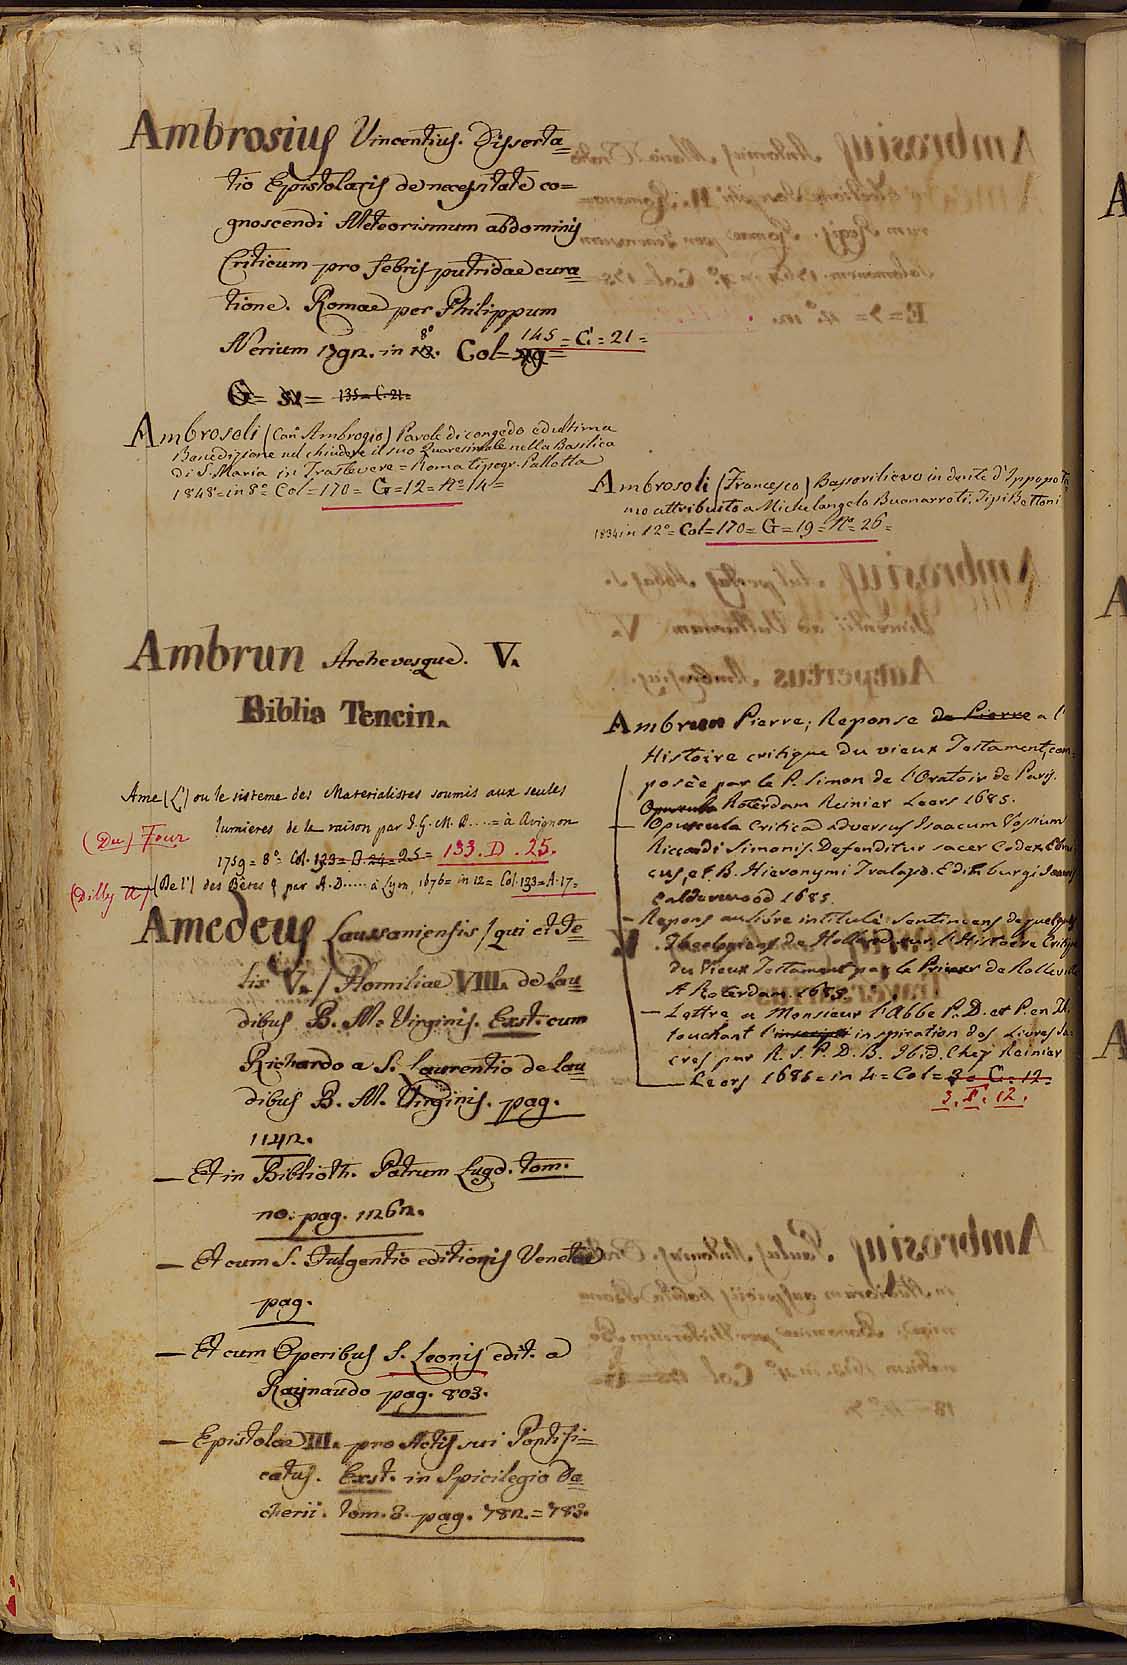 Ambrosius Vincentius. Disserta=
tio Epistolaris de necessitate co=
gnoscendi Meteorismum abdominis
Criticum pro febris putridae cura
tione. Romae per Philippum
Nerium 1792. in 8º Col= 145 = G = 21 =
135 = C. 21 =
Ambrosoli (Can. Ambrogio) Parole di congedo ed ultima
Benedizione nel chiudere il suo Quaresimale nella Basilica
di S. Maria in Trastevere = Roma tipogr. Pallotta
1848 = in 8º Col = 170 = G = 12 = Nº 14 =
Ambrun Archevesque. V.
Biblia Tencin.
Ame (L') ou le sisteme des Materialistes soumis aux seules
(Du) Four lumieres de la raison par = à Avignon
1759 = 8º Col. 25 = 133. D. 25.
(Dilly A) (De l') des Bêtes par A. D..... à Lyon, 1676 = in 12 = Col. 133 = A. 17 =
Amedeus Lausaniensis / qui et Fe=
lix V. / Homiliae VIII. de lau
dibus B. M. Virginis. Exst. cum
Richardo a S. Laurentio de lau
dibus B. M. Virginis. pag.
1142.
— Et in Biblioth. Patrum Lugd. tom.
20. pag. 1262.
— Et cum S. Fulgentio editionis Venetae
pag.
— Et cum Operibus S. Leonis edit. a
Raynaudo pag. 803.
— Epistolae III. pro Actis sui Pontifi=
catus. Exst. in Spicilegio Da
cherii. tom. 3. pag. 782. = 783.
Ambrosoli (Francesco) Bassorilievo in dente d'Ippopota
mo attribuito a Michelangelo Buonarroti. Tipi Bettoni
1834 in 12º = Col = 170 = G = 19 = Nº 26 =
Ambrun Pierre; Reponse de Pierre a l'
Histoire critique du vieux Testament, com
posèe par le P. Simon de l'Oratoir de Paris.
Opuscula Roterdam Reinier Leers 1685.
— Opuscula Critica adversus Isaacum Vossium
Riccardi Simonis. Defenditur sacer Codex Ebrai
cus, et B. Hieronymi Tralap. Edimburgi Joannis
Calderwood 1685.
— Repons au livre intitulè sentimens de quelques
Theologiens de Hollande sur l'Histoire Critique
du Vieux Testament par le Prieur de Bolleville
A Roterdam. 1685.
— Lettre a Monsieur l'Abbe P. D. et P. en Th.
touchant l' inspiration des Livres Sa
cres par R. S. P. D. B. Ibid. Chez Reinier
Leers 1686 = in 4 = Col = G. 12.
3. F. 12.